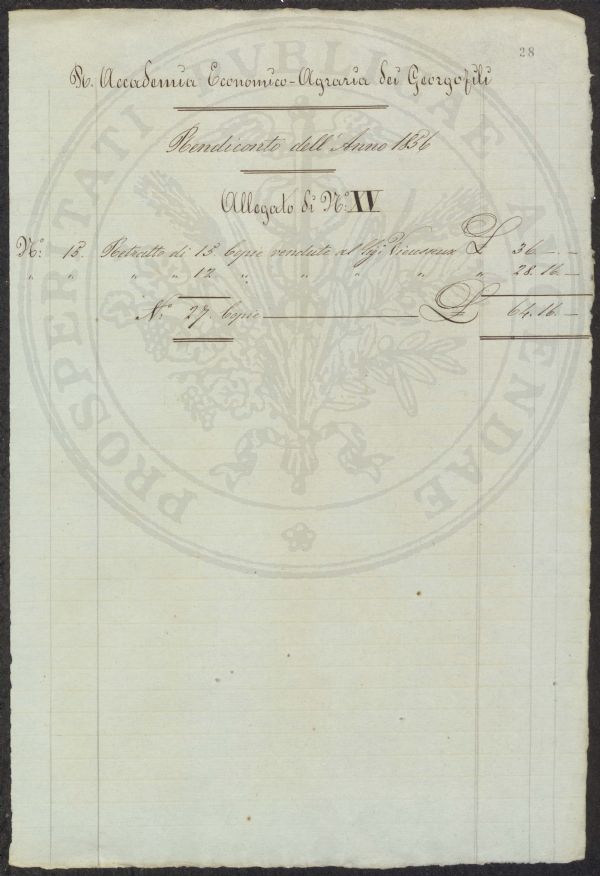 28
R. Accademia Economico-Agraria dei Georgofili
Rendiconto dell'Anno 1856
Allegato di N.o XV
N.o 15. Ritratto di 15. Copie vendute al Sig.r Vieusseux £ 36. — —
" " " " 12 " " " " " 28. 16. —
N.o 27. Copie £ 64. 16. —
PROSPERITATI PUBLICAE AUGENDAE